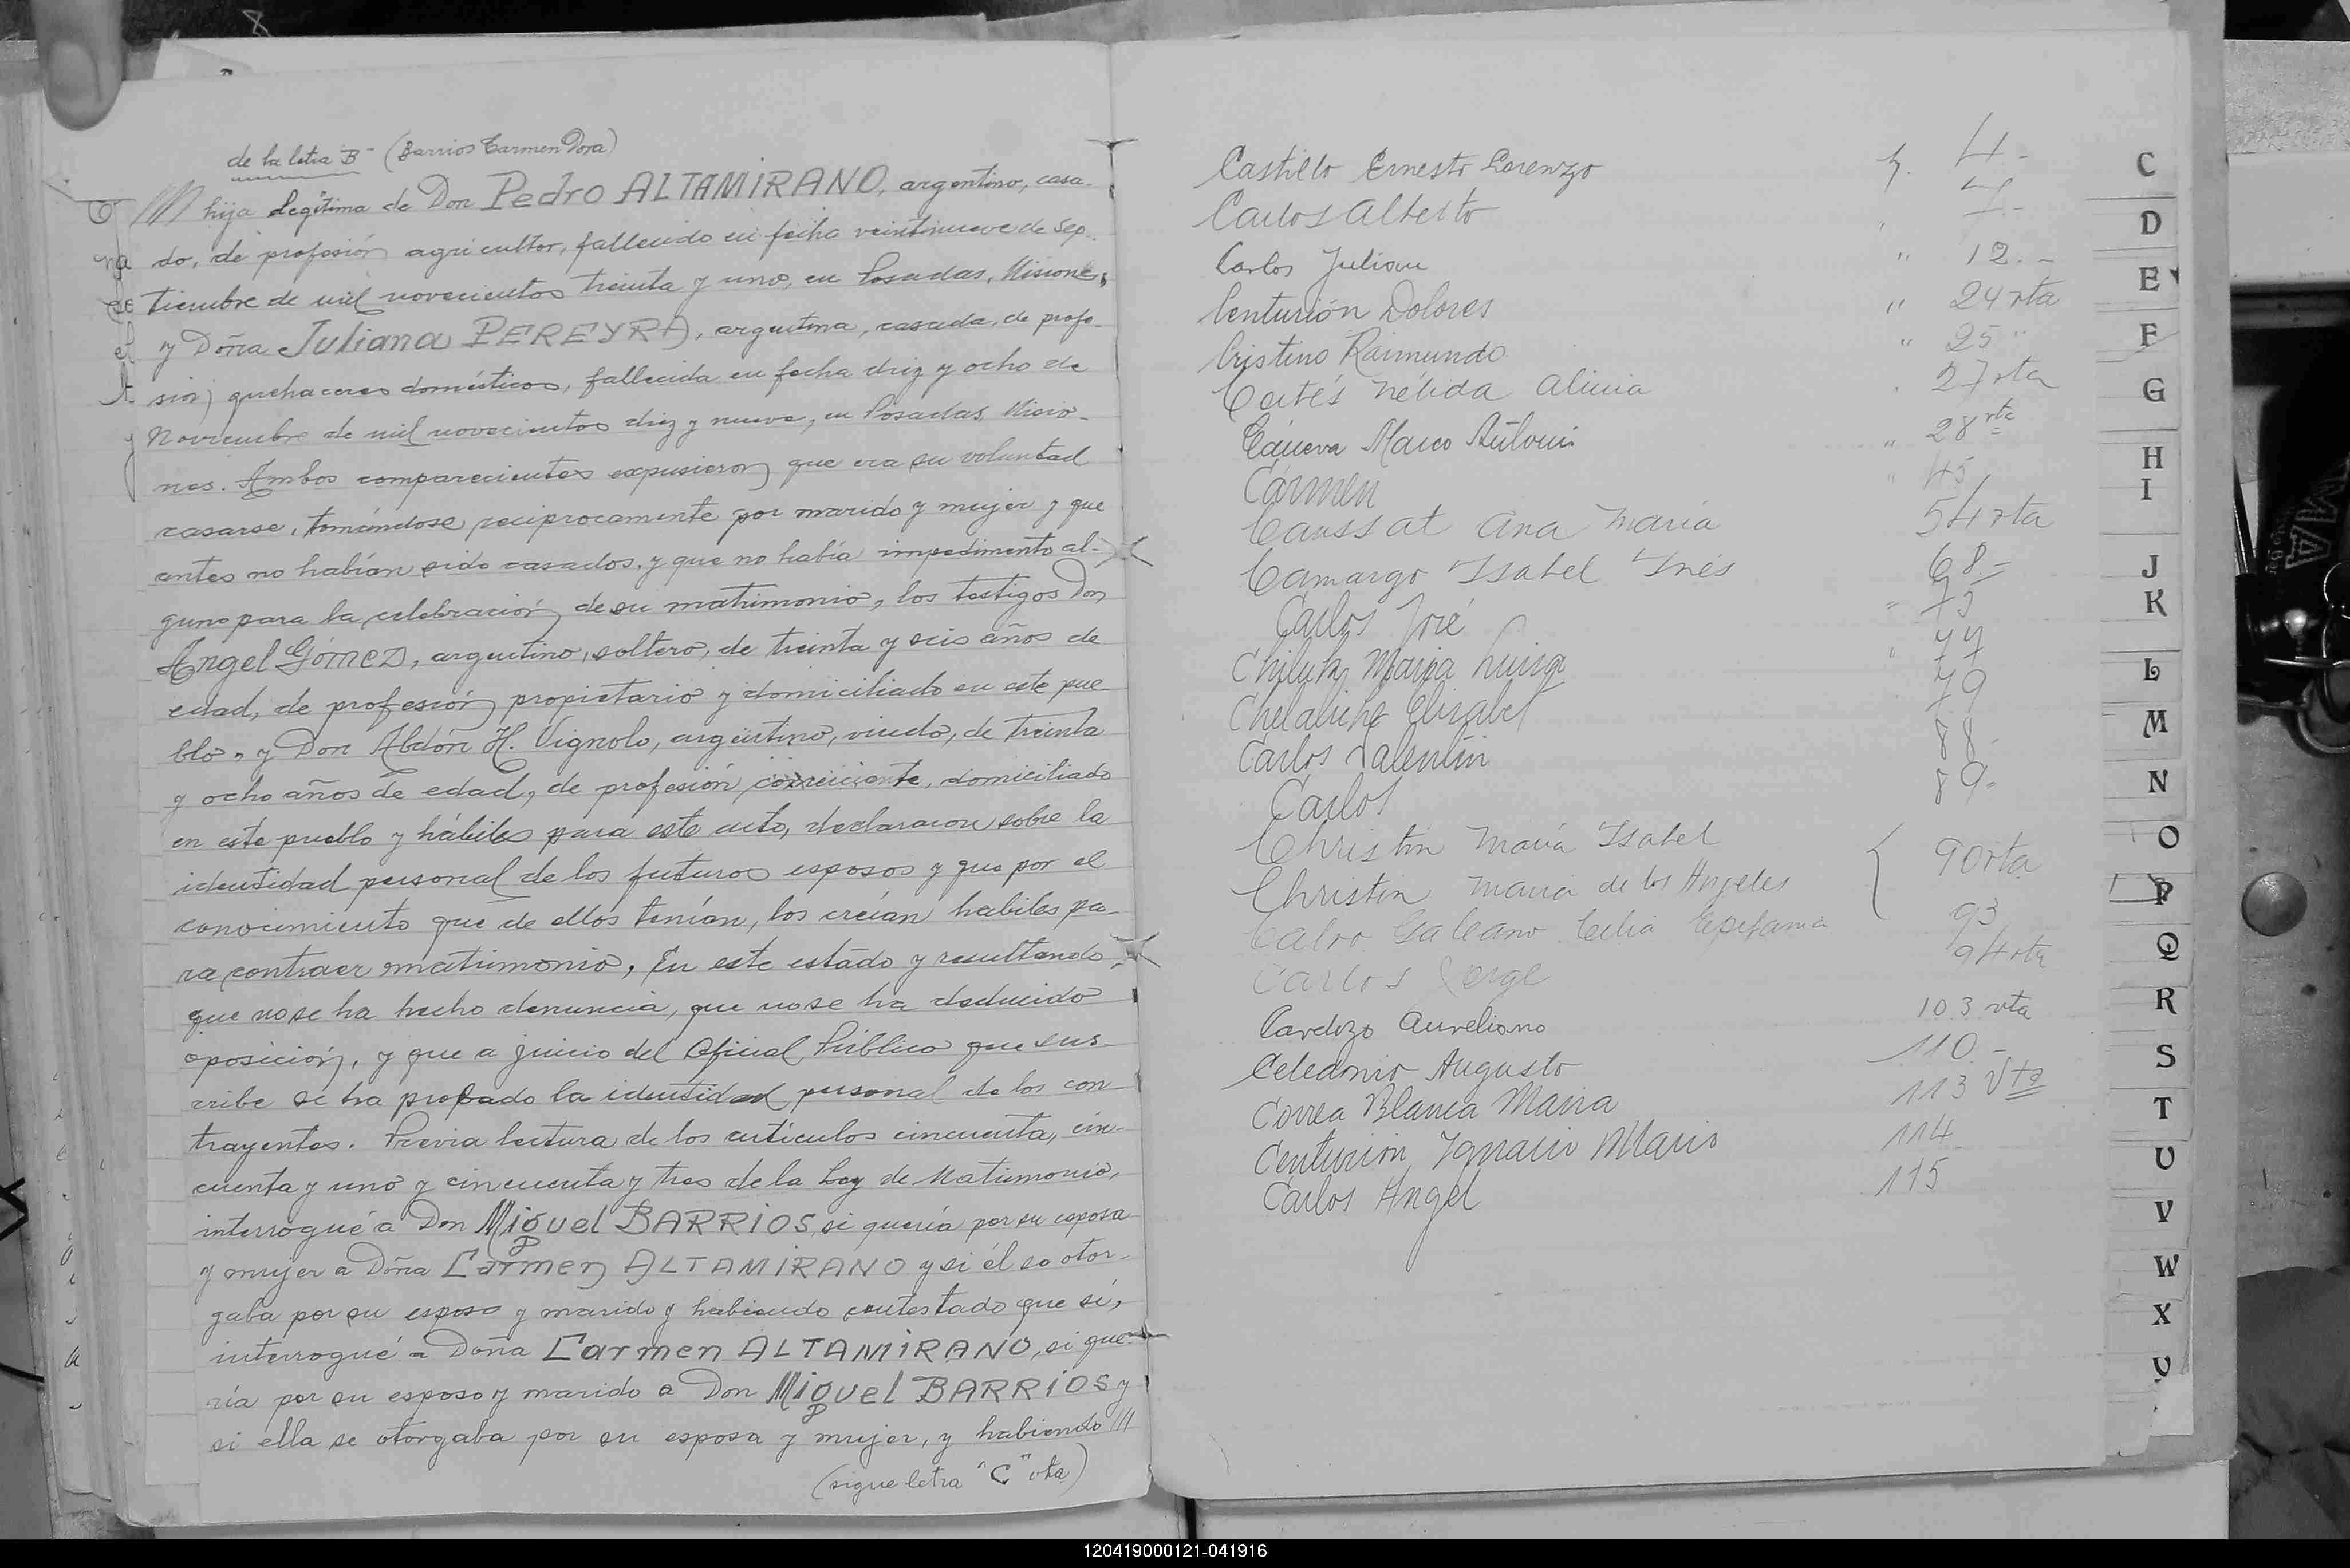 de la letra "B" (Barrios Carmen Dora)
/// hija legítima de Don Pedro ALTAMIRANO, argentino, casa-
do, de profesión agricultor, fallecido en fecha veintinueve de Sep-
tiembre de mil novecientos treinta y uno, en Posadas, Misiones,
y Doña Juliana PEREYRA, argentina, casada, de profe-
sión quehaceres domésticos, fallecida en fecha diez y ocho de
Noviembre de mil novecientos diez y nueve, en Posadas, Misio-
nes. Ambos comparecientes expusieron que era su voluntad
casarse, tomándose recíprocamente por marido y mujer y que
antes no habían sido casados, y que no había impedimento al-
guno para la celebración de su matrimonio, los testigos Don
Angel Gómez, argentino, soltero, de treinta y seis años de
edad, de profesión propietario y domiciliado en este pue-
blo, y Don Abdón H. Vignolo, argentino, viudo, de treinta
y ocho años de edad, de profesión comerciante, domiciliado
en este pueblo y hábiles para este acto, declararon sobre la
identidad personal de los futuros esposos y que por el
conocimiento que de ellos tenían, los creían habiles pa-
ra contraer matrimonio. En este estado y resultando
que no se ha hecho denuncia, que no se ha deducido
oposición, y que a juicio del Oficial Público que sus-
cribe se ha probado la identidad personal de los con-
trayentes. Previa lectura de los artículos cincuenta, cin-
cuenta y uno y cincuenta y tres de la Ley de Matrimonio,
interrogué a Don Miguel BARRIOS, si quería por su esposa
y mujer a Doña Carmen ALTAMIRANO y si él se otor-
gaba por su esposo y marido y habiendo contestado que sí,
interrogué a Doña Carmen ALTAMIRANO, si que-
ría por su esposo y marido a Don Miguel BARRIOS y
si ella se otorgaba por su esposa y mujer, y habiendo ///
(sigue letra "C" vta)
Castillo Ernesto Lorenzo 4-
Carlos Alberto 7-
Carlos Julian " 12.-
Centurión Dolores " 24 vta
Cristino Raimundo " 25 "
Cortés Nélida Alicia 27 vta
Cáneva Marco Antonio " 28 vta
Carmen " 45
Caussat Ana María 54 vta
Camargo Isabel Inés 68-
Carlos José " 75
Maria Luisa " 77
Elisabet 79
Carlos Valentín 88-
Carlos 89-
Christin María Isabel
Christin María de los Angeles 90 vta
Calvo Galeano Celia Epifania 93
Carlos Jorge 94 vta
Cardozo Aureliano 103 vta
Celedonio Augusto 110-
Correa Blanca Maria 113 Vta
Centurión Ignacio Mario 114
Carlos Angel 115
C
D
E
F
G
H
I
J
K
L
M
N
O
P
Q
R
S
T
U
V
W
X
120419000121-041916